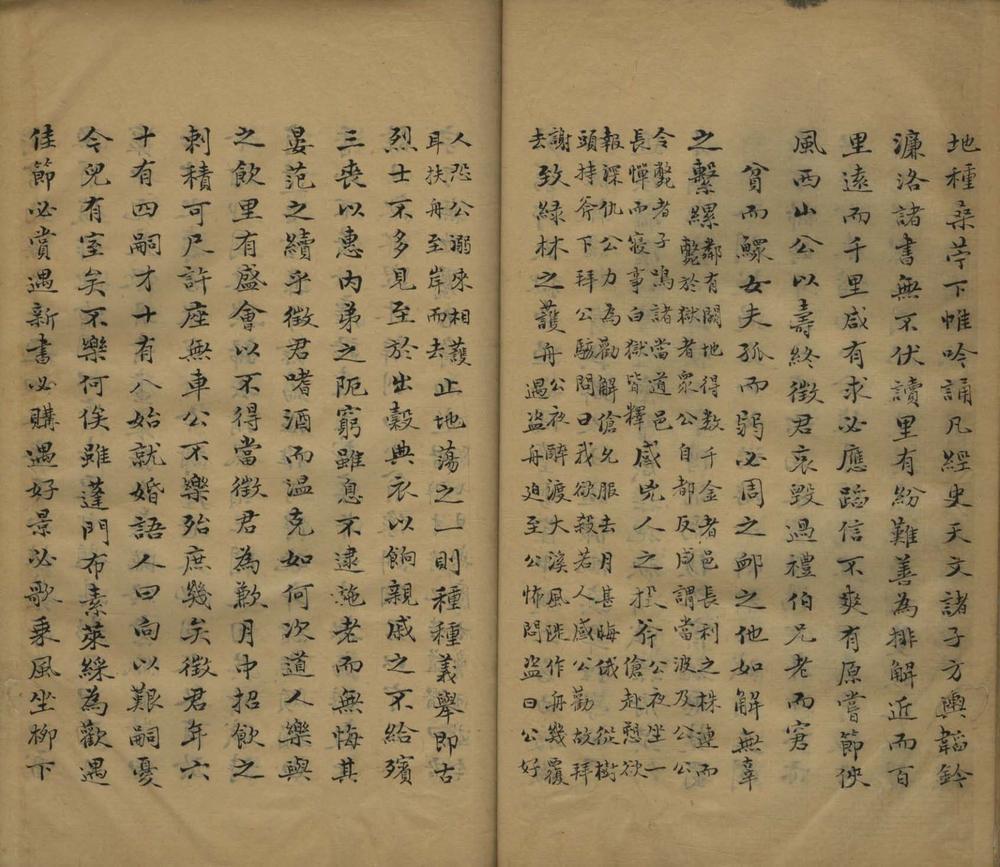 地種桑苧下帷吟誦凡經史天文諸子方輿韜鈐
濂洛諸書無不伏讀里有紛難善為排解近而百
里遠而千里咸有求必應蹈信不爽有原嘗節俠
風西山公以壽終徵君哀毀過禮伯兄老而窘
貧而鰥女夫孤而弱必周之卹之他如解無辜
之繫縲鄰有鬪地得数千金者邑長利之株連而
斃於獄者衆公自都反咸謂當波及公公
令斃者子鳴諸當道邑
長憚而寢事白獄皆釋感兇人之投斧公夜坐一
傖赴愬欲
報深仇公力為勸解傖乞服去月甚晦俄從樹
頭持斧下拜公駭問曰我欲殺若人感公勸故拜
謝
去致緑林之護舟公夜醉渡大溪風陡作舟幾覆
遇盗舟迫至公怖問盗曰公好
人恐公溺來相護
耳扶舟至岸而去止地蕩之一則種種義舉即古
烈士不多見至於出穀典衣以餉親戚之不給殯
三喪以惠内弟之阨窮雖息不逮施老而無悔其
晏范之續乎徵君嗜酒而温克如何次道人樂與
之飲里有盛會以不得當徵君為歉月中招飲之
刺積可尺許座無車公不樂殆庶幾矣徵君年六
十有四嗣才十有八始就婚語人曰向以艱嗣憂
今兒有室矣不樂何俟雖蓬門布素萊綵為歡遇
佳節必賞遇新書必購遇好景必歌乘風坐柳下